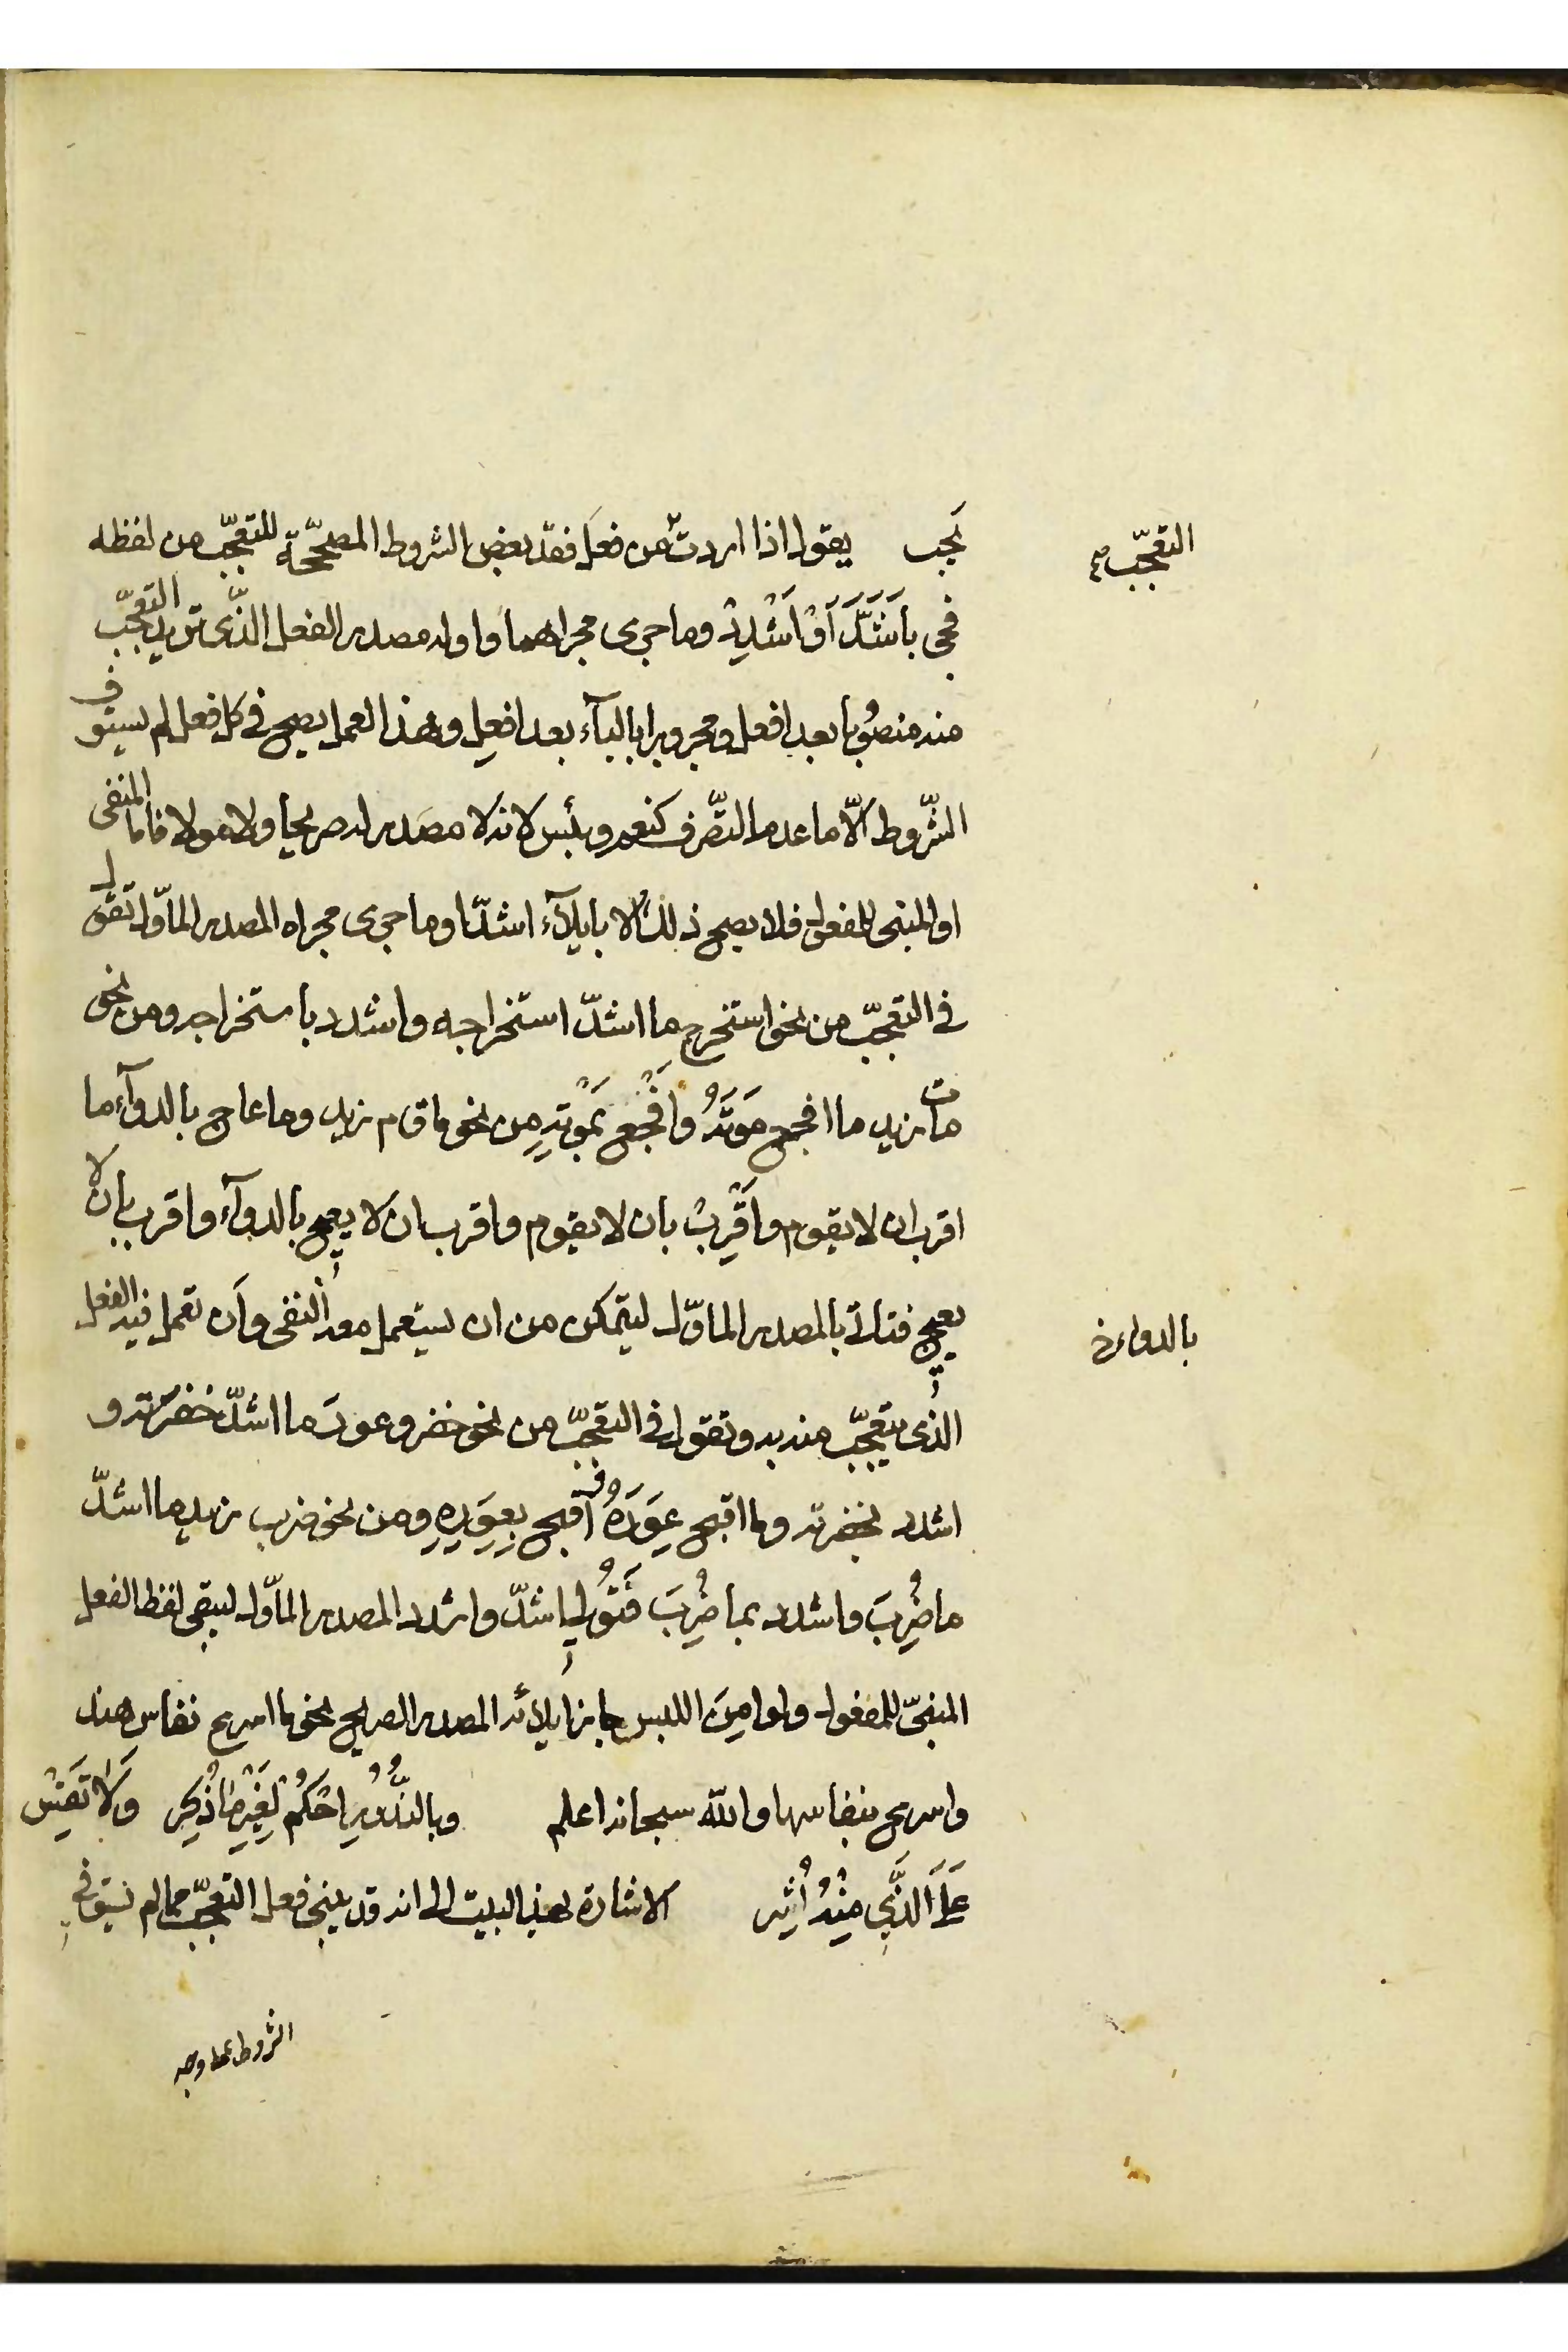 يَجِب يقول اذا اردت من فعل فقد بعض الشروط المصحّحة للتعجّب من لفظه
التعجّب صح
فجئ بأَشَدَّ أَوْ أَشْدِدْ وما جرى مجراهما واوله مصدر الفعل الذّى تريد التعجّب
منه منصُوبا بعد افعل ومجرورا بالبآء بعد افعِل وهذا العمل يصح فى كل فعل لم يستوف
الشّروط الّا ما عدم التصّرف كنعم وبئس لانه لا مصدر له صريحا ولا مولا فاما المنفى
او المبنى للمفعول فلا يصح ذلك الا بايلآء اشدّ او ما جرى مجراه المصدر المأوّل تقول
فى التعجّب من نحو استخرج ما اشدّ استخراجه واشدد باستخراجه ومن نحو
مات زيد ما افجع مَوتَهُ وَافْجع بمَوْتِهِ من نحو ما قام زيد وما عاج بالدوآء ما
اقرب ان لا يقوم واَقْرِبْ بان لا يقوم واقرب ان لا يعيج بالدوآء واقرب بأن لا
يعيج فتاتى بالمصدر المأوّل ليتمكن من ان يستعمل معه النفى وأن تعمل فيه الفعل
بالدواء خ
الذى يتعجّب منه به وتقول فى التعجّب من نحو خضر وعور ما اشدّ خضرته و
اشدد بخضرته وما اقبح عَوَرَهُ وأقبح بِعَوَرِهِ ومن نحو ضرب زيد ما اشدّ
ما ضُرِبَ واشدد بما ضُرِبَ فَتُولِى اشدّ واشدد المصدر المأوّل ليبقى لفظ الفعل
المبنىّ للمفعول ولو امِنَ اللبس جاز ايلائه المصدر الصريح نحو ما اسرع نفاس هند
واسرع بنفاسها والله سبحانه اعلم وبالنُّدُورِ احْكُمْ لِغَيْرِ مَا ذُكِر وَلَا تَقِسْ
عَلَى الَّذِي مِنْهُ أُثِر الاشارة بهذا البيت الى انه قد يبنى فعل التعجّب مما لم يستوف
الشروط على وجه